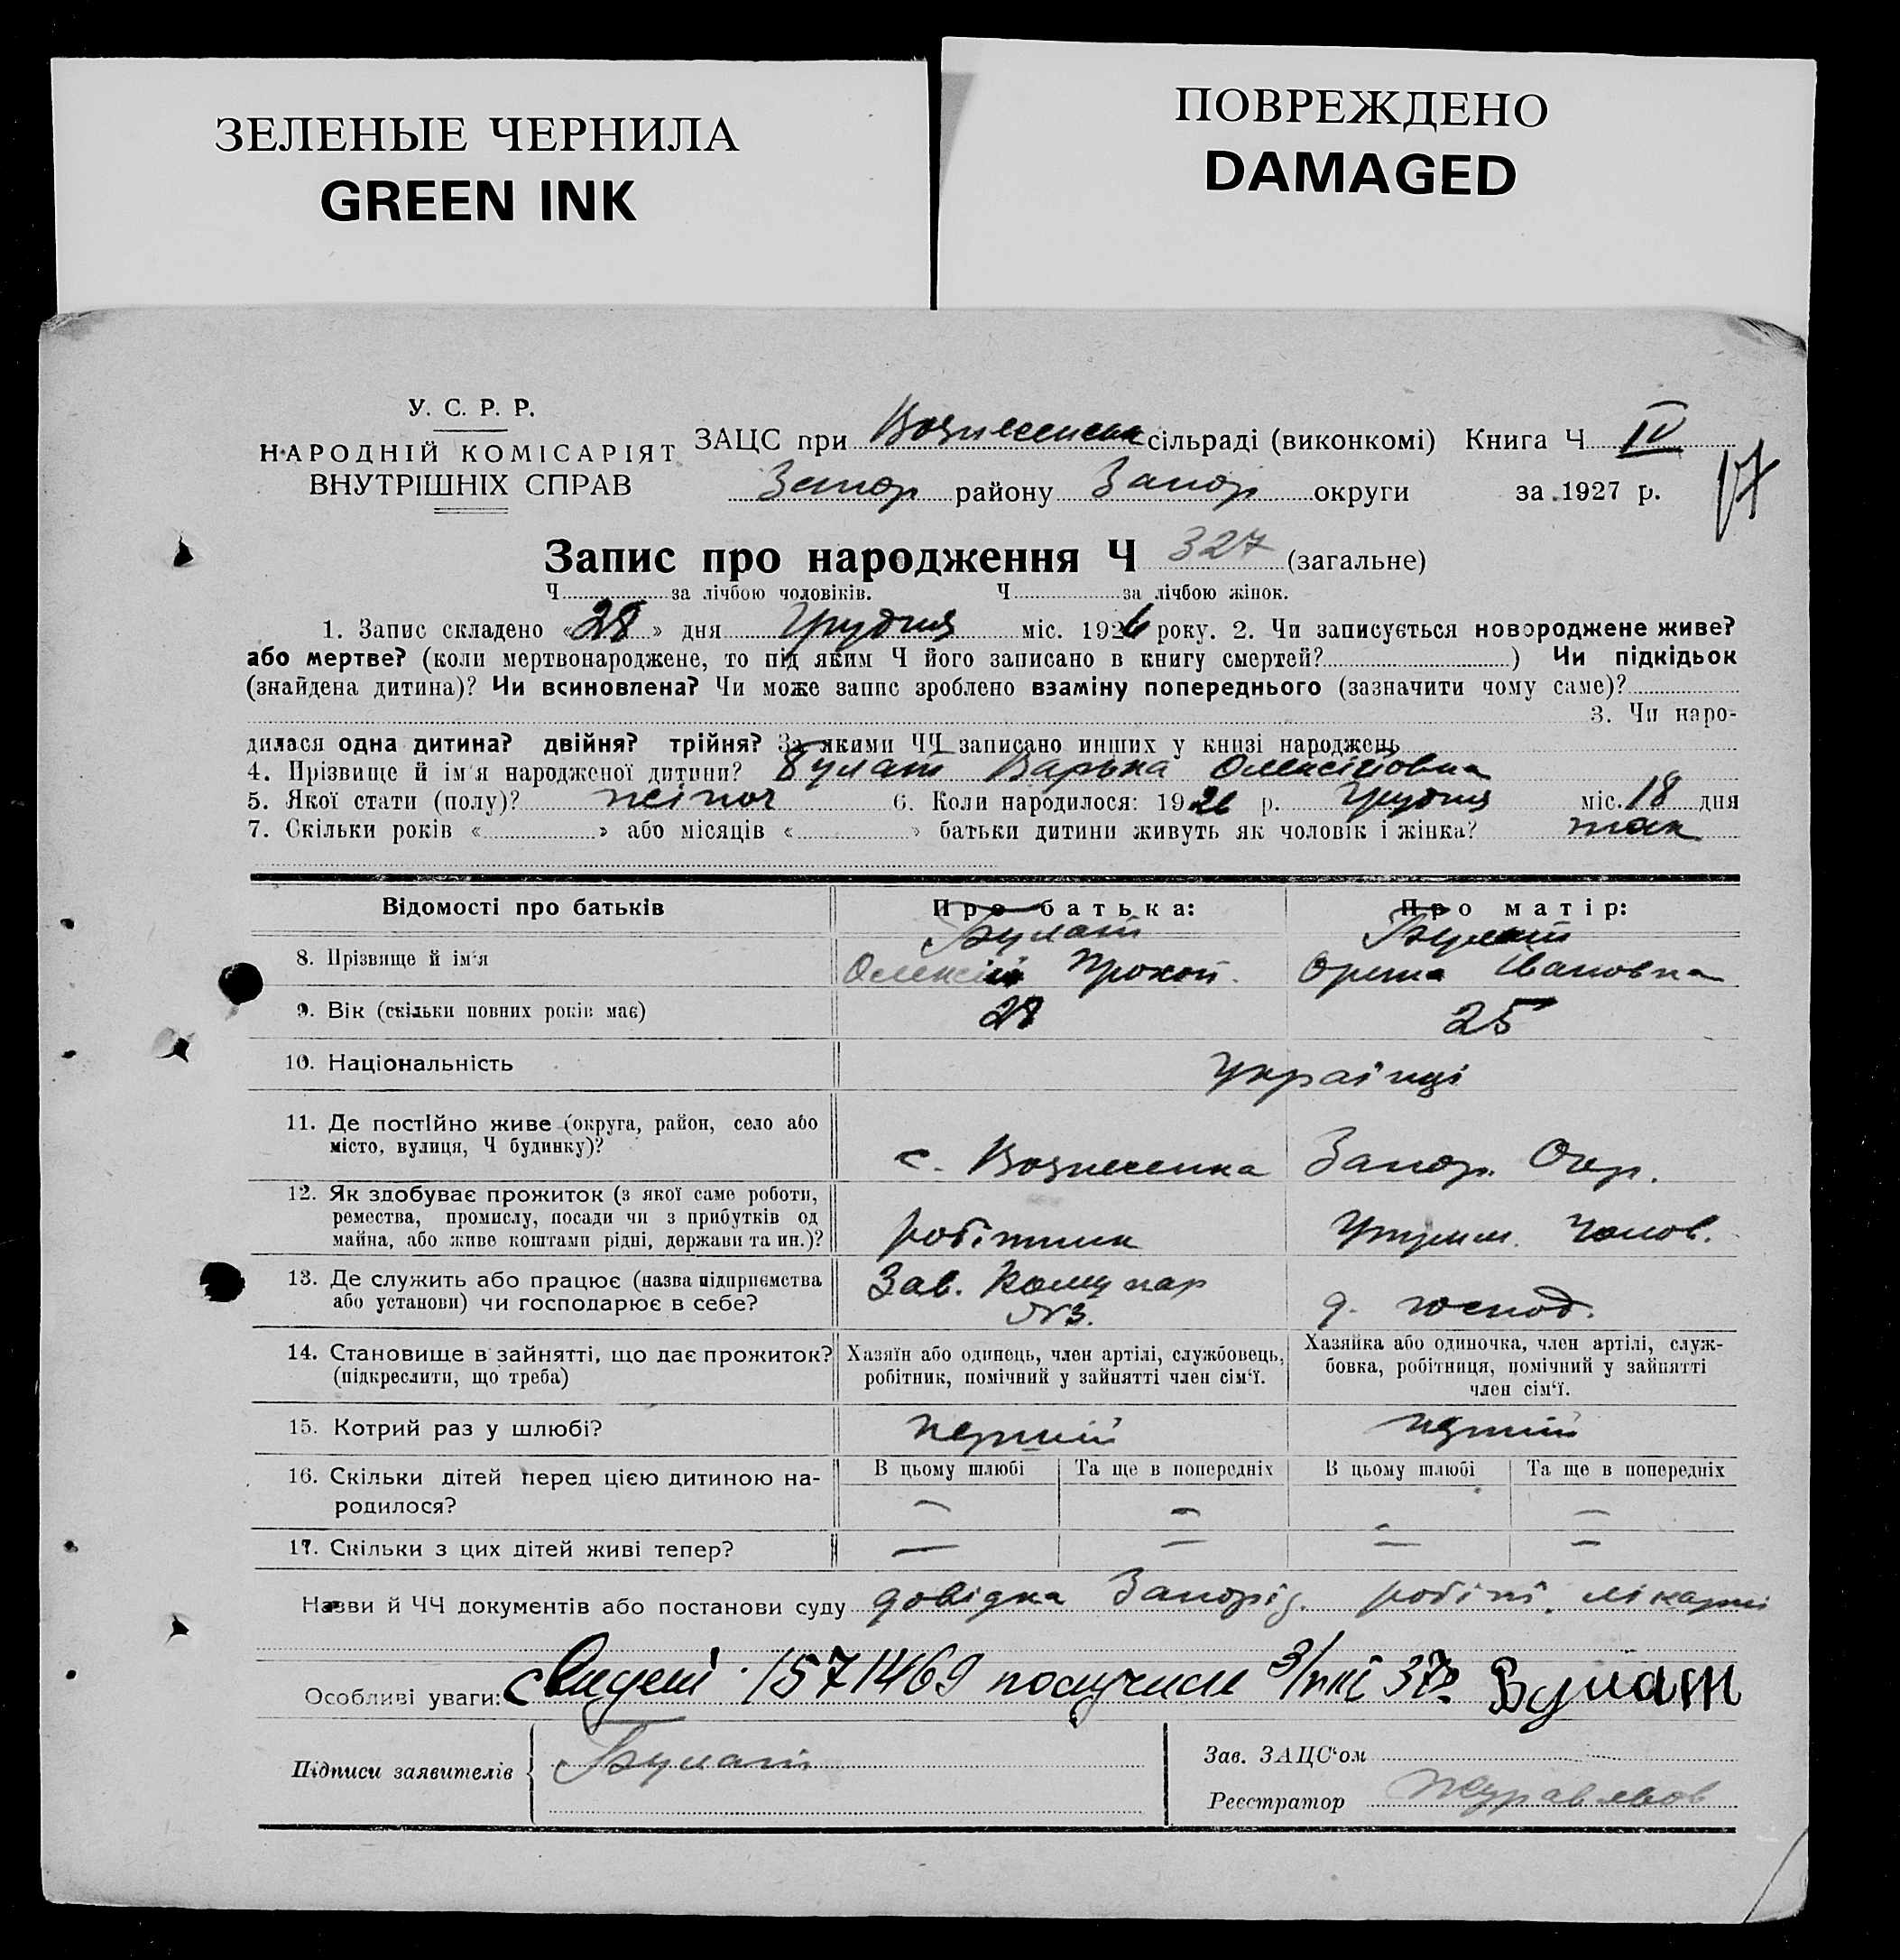 ЗЕЛЕНЫЕ ЧЕРНИЛА
GREEN INK
ПОВРЕЖДЕНО
DAMAGED
У. С. Р. Р.
НАРОДНІЙ КОМІСАРІЯТ
ВНУТРІШНІХ СПРАВ
ЗАЦС при Вознесенськ сільраді (виконкомі) Книга Ч IV
Запор району Запор округи за 1927 р. 17
Запис про народження Ч 327 (загальне)
Ч за лічбою чоловіків. Ч за лічбою жінок.
1. Запис складено «28» дня Грудня міс. 1926 року. 2. Чи записується новороджене живе?
або мертве? (коли мертвонароджене, то під яким Ч його записано в книгу смертей?) Чи підкідьок
(знайдена дитина)? Чи всиновлена? Чи може запис зроблено взаміну попереднього (зазначити чому саме)?
3. Чи наро-
дилася одна дитина? двійня? трійня? За якими ЧЧ записано инших у книзі народжень
4. Прізвище й ім'я народженої дитини? Булат Варька Олексіївна
5. Якої стати (полу)? жіноч 6. Коли народилося: 1926 р. Грудня міс. 18 дня
7. Скільки років « » або місяців « » батьки дитини живуть як чоловік і жінка? так
Відомості про батьків Про батька: Про матір:
Булат Булат
8. Прізвище й ім'я Олексій Прокоп. Орина Івановна
9. Вік (скільки повних років має) 28 25
10. Національність Українці
11. Де постійно живе (округа, район, село або
місто, вулиця, Ч будинку)? с. Вознесенка Запор. Окр.
12. Як здобуває прожиток (з якої саме роботи,
ремества, промислу, посади чи з прибутків од
майна, або живе коштами рідні, держави та ин.)? робітник Утрим. Чолов.
13. Де служить або працює (назва підприємства
або установи) чи господарює в себе? Зав. Комунар №3. д. господ.
14. Становище в зайнятті, що дає прожиток?
(підкреслити, що треба)
Хазяїн або одинець, член артілі, службовець,
робітник, помічний у зайнятті член сім'ї.
Хазяйка або одиночка, член артілі, служ-
бовка, робітниця, помічний у зайнятті
член сім'ї.
15. Котрий раз у шлюбі? перший перший
16. Скільки дітей перед цією дитиною на-
родилося?
В цьому шлюбі Та ще в попередніх В цьому шлюбі Та ще в попередніх
— — — —
17. Скільки з цих дітей живі тепер? — — — —
Назви й ЧЧ документів або постанови суду довідка Запоріз. робітн. лікарні
Особливі уваги: 1571469 получили 37р Булат
Підписи заявителів Булат
Зав. ЗАЦС'ом
Реєстратор Журавльов